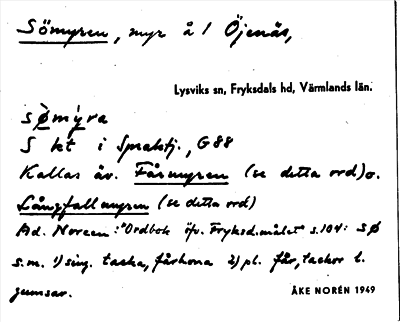 Sömyren, myr å 1 Öjenäs,
Lysviks sn, Fryksdals hd, Värmlands län.
sø̀mýra
S kt i Sprakstj., G88
Kallas äv. Fårmyren (se detta ord) o.
Långfallmyren (se detta ord)
Ad. Noreen: "Ordbok öfv. Fryksd.målet" s. 104: sø
s.m. 1) sing. tacka, fårhona 2) pl. får, tackor l.
gumsar.
ÅKE NORÉN 1949